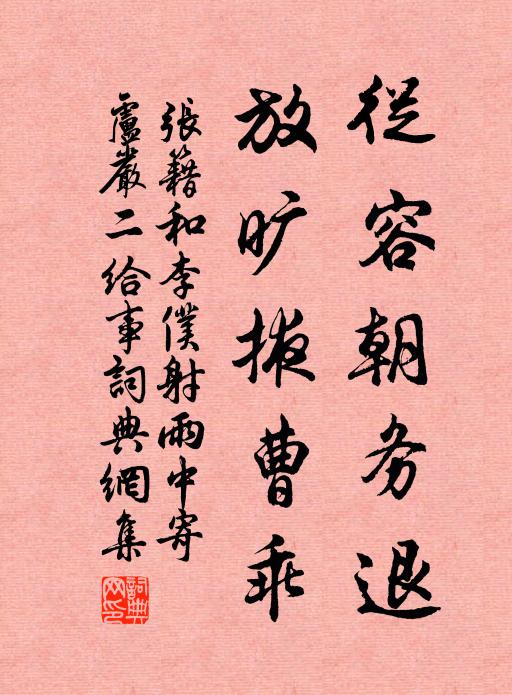 從容朝务退
放旷掖曹乖
張籍和李僕射雨中寄
盧嚴二給事詞典網集
詞典網印